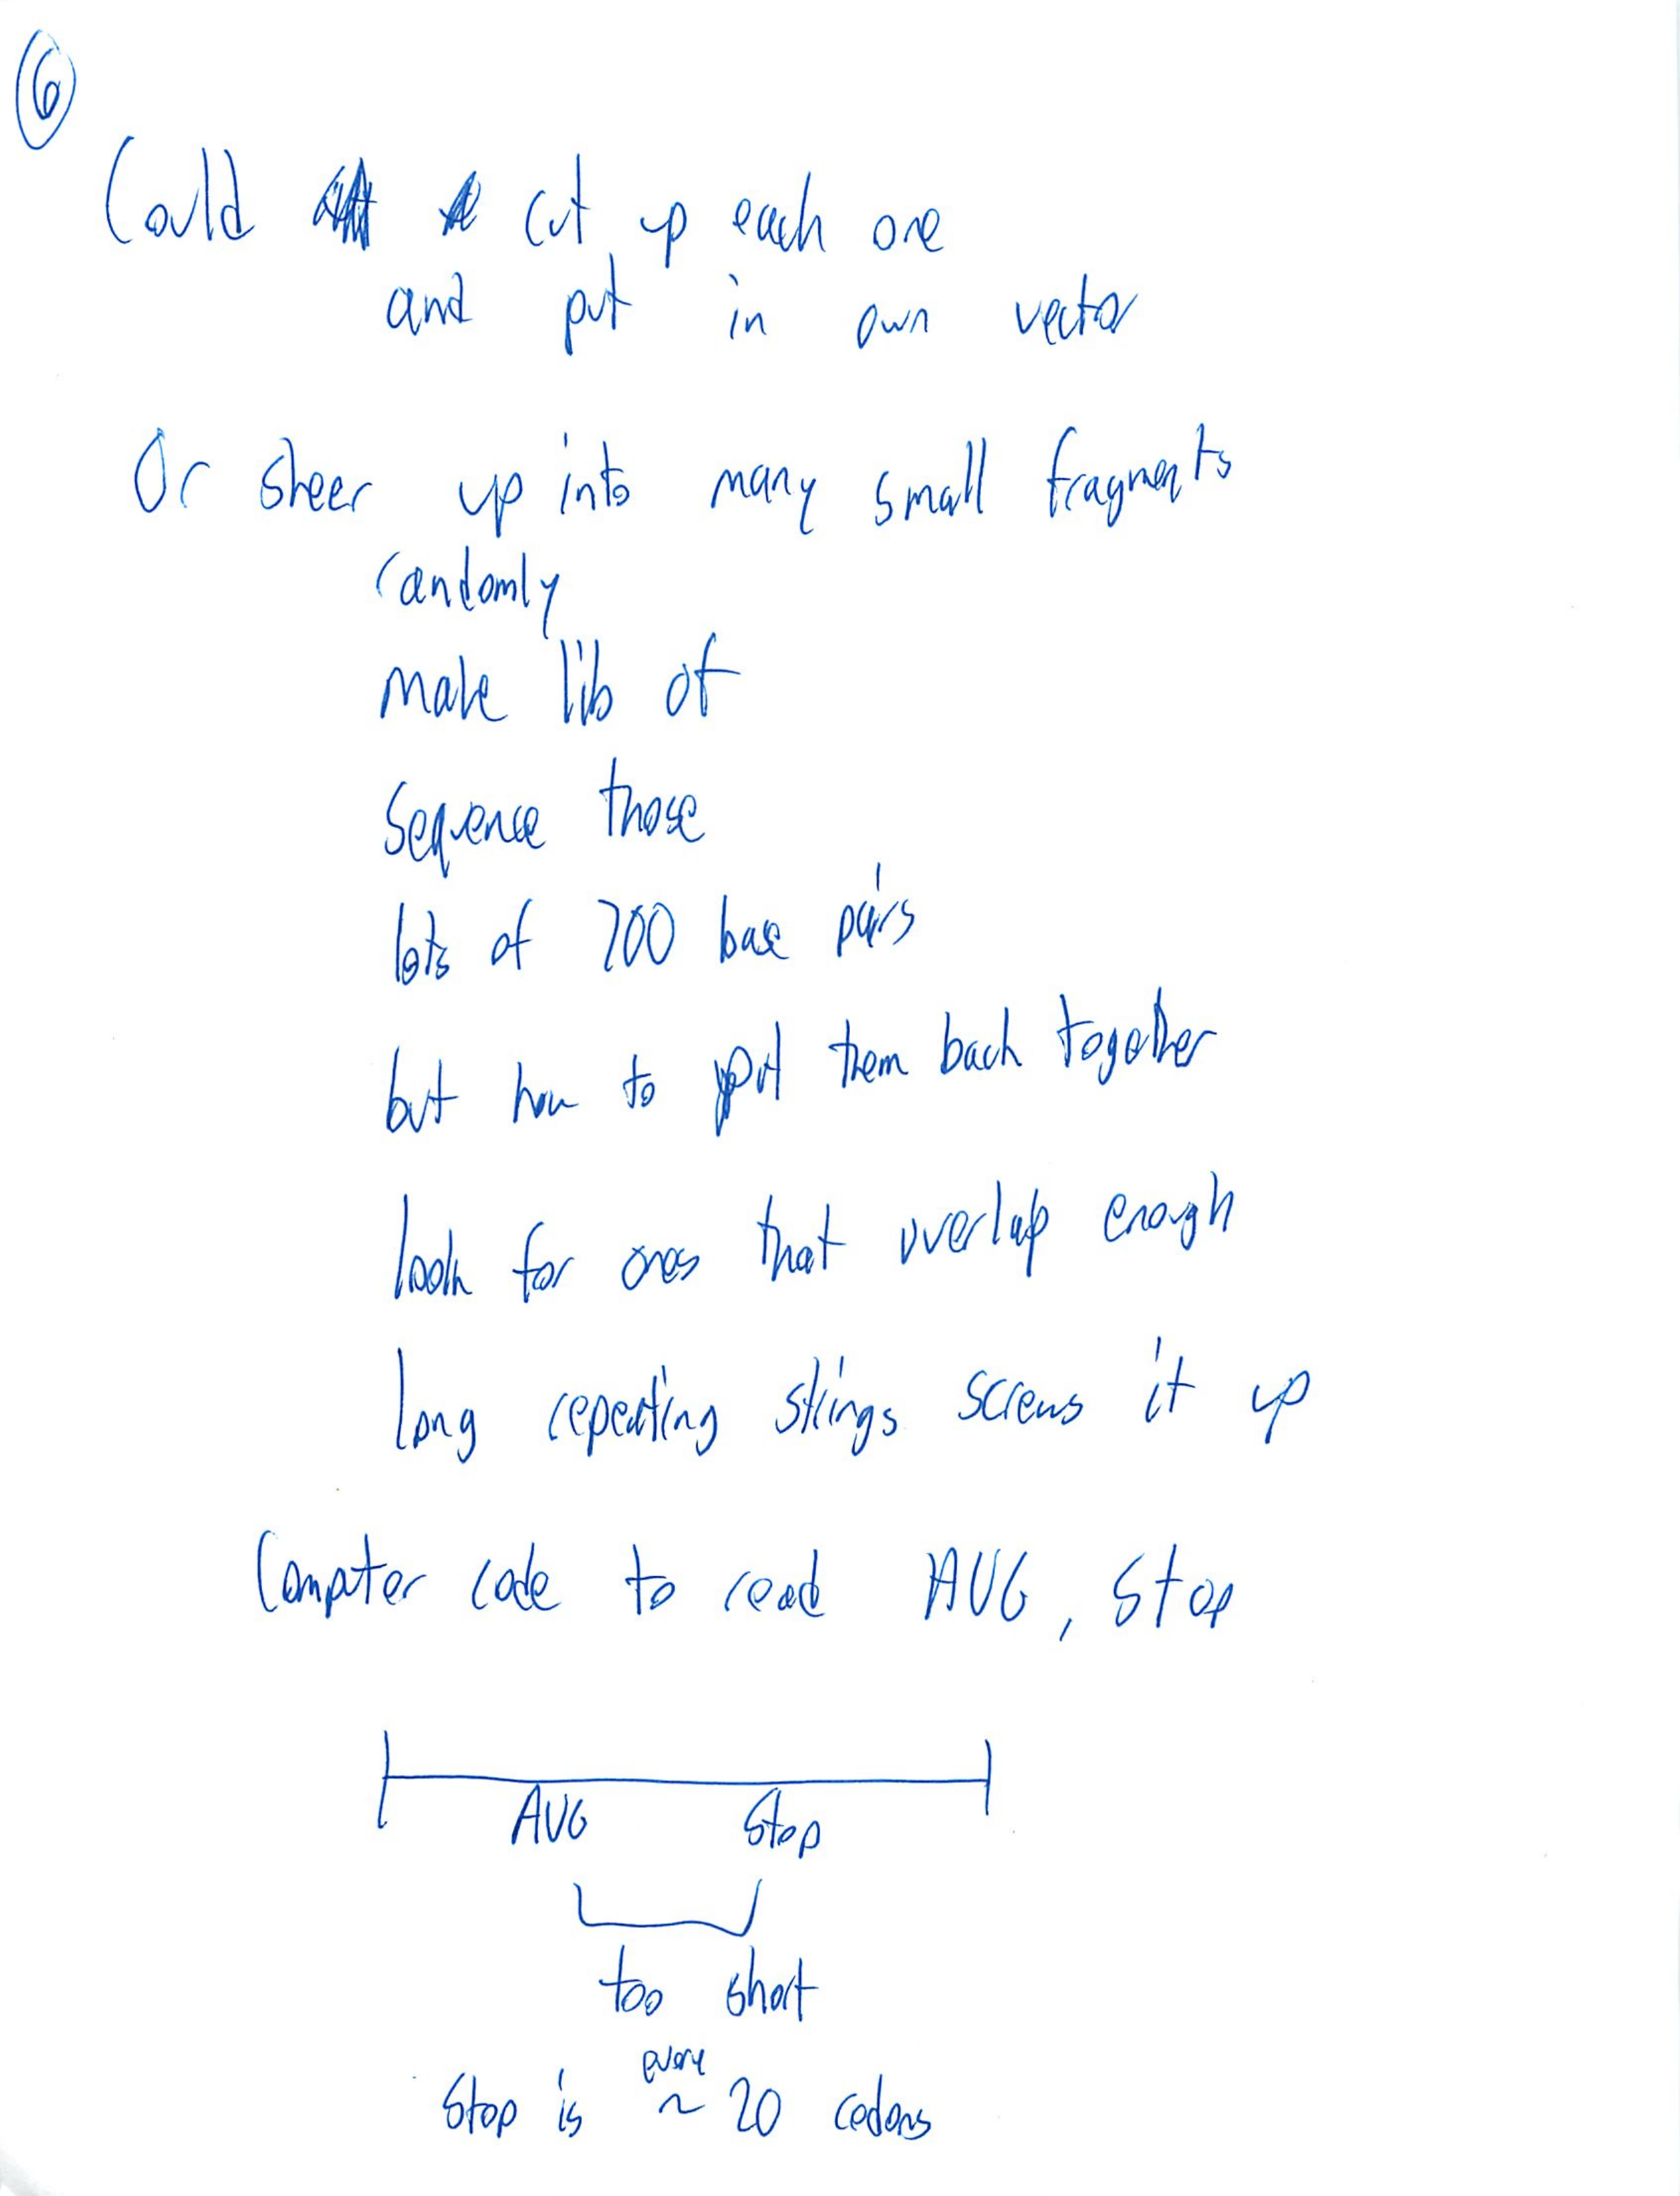 6
Could cut up each one
and put in own vector
Or sheer up into many small fragments
randomly
make lib of
Sequence those
lots of 700 base pairs
but how to put them back together
look for ones that overlap enough
long repeating strings screws it up
Computer code to read AUG, Stop
AUG Stop
too short
every
Stop is ~ 20 codons